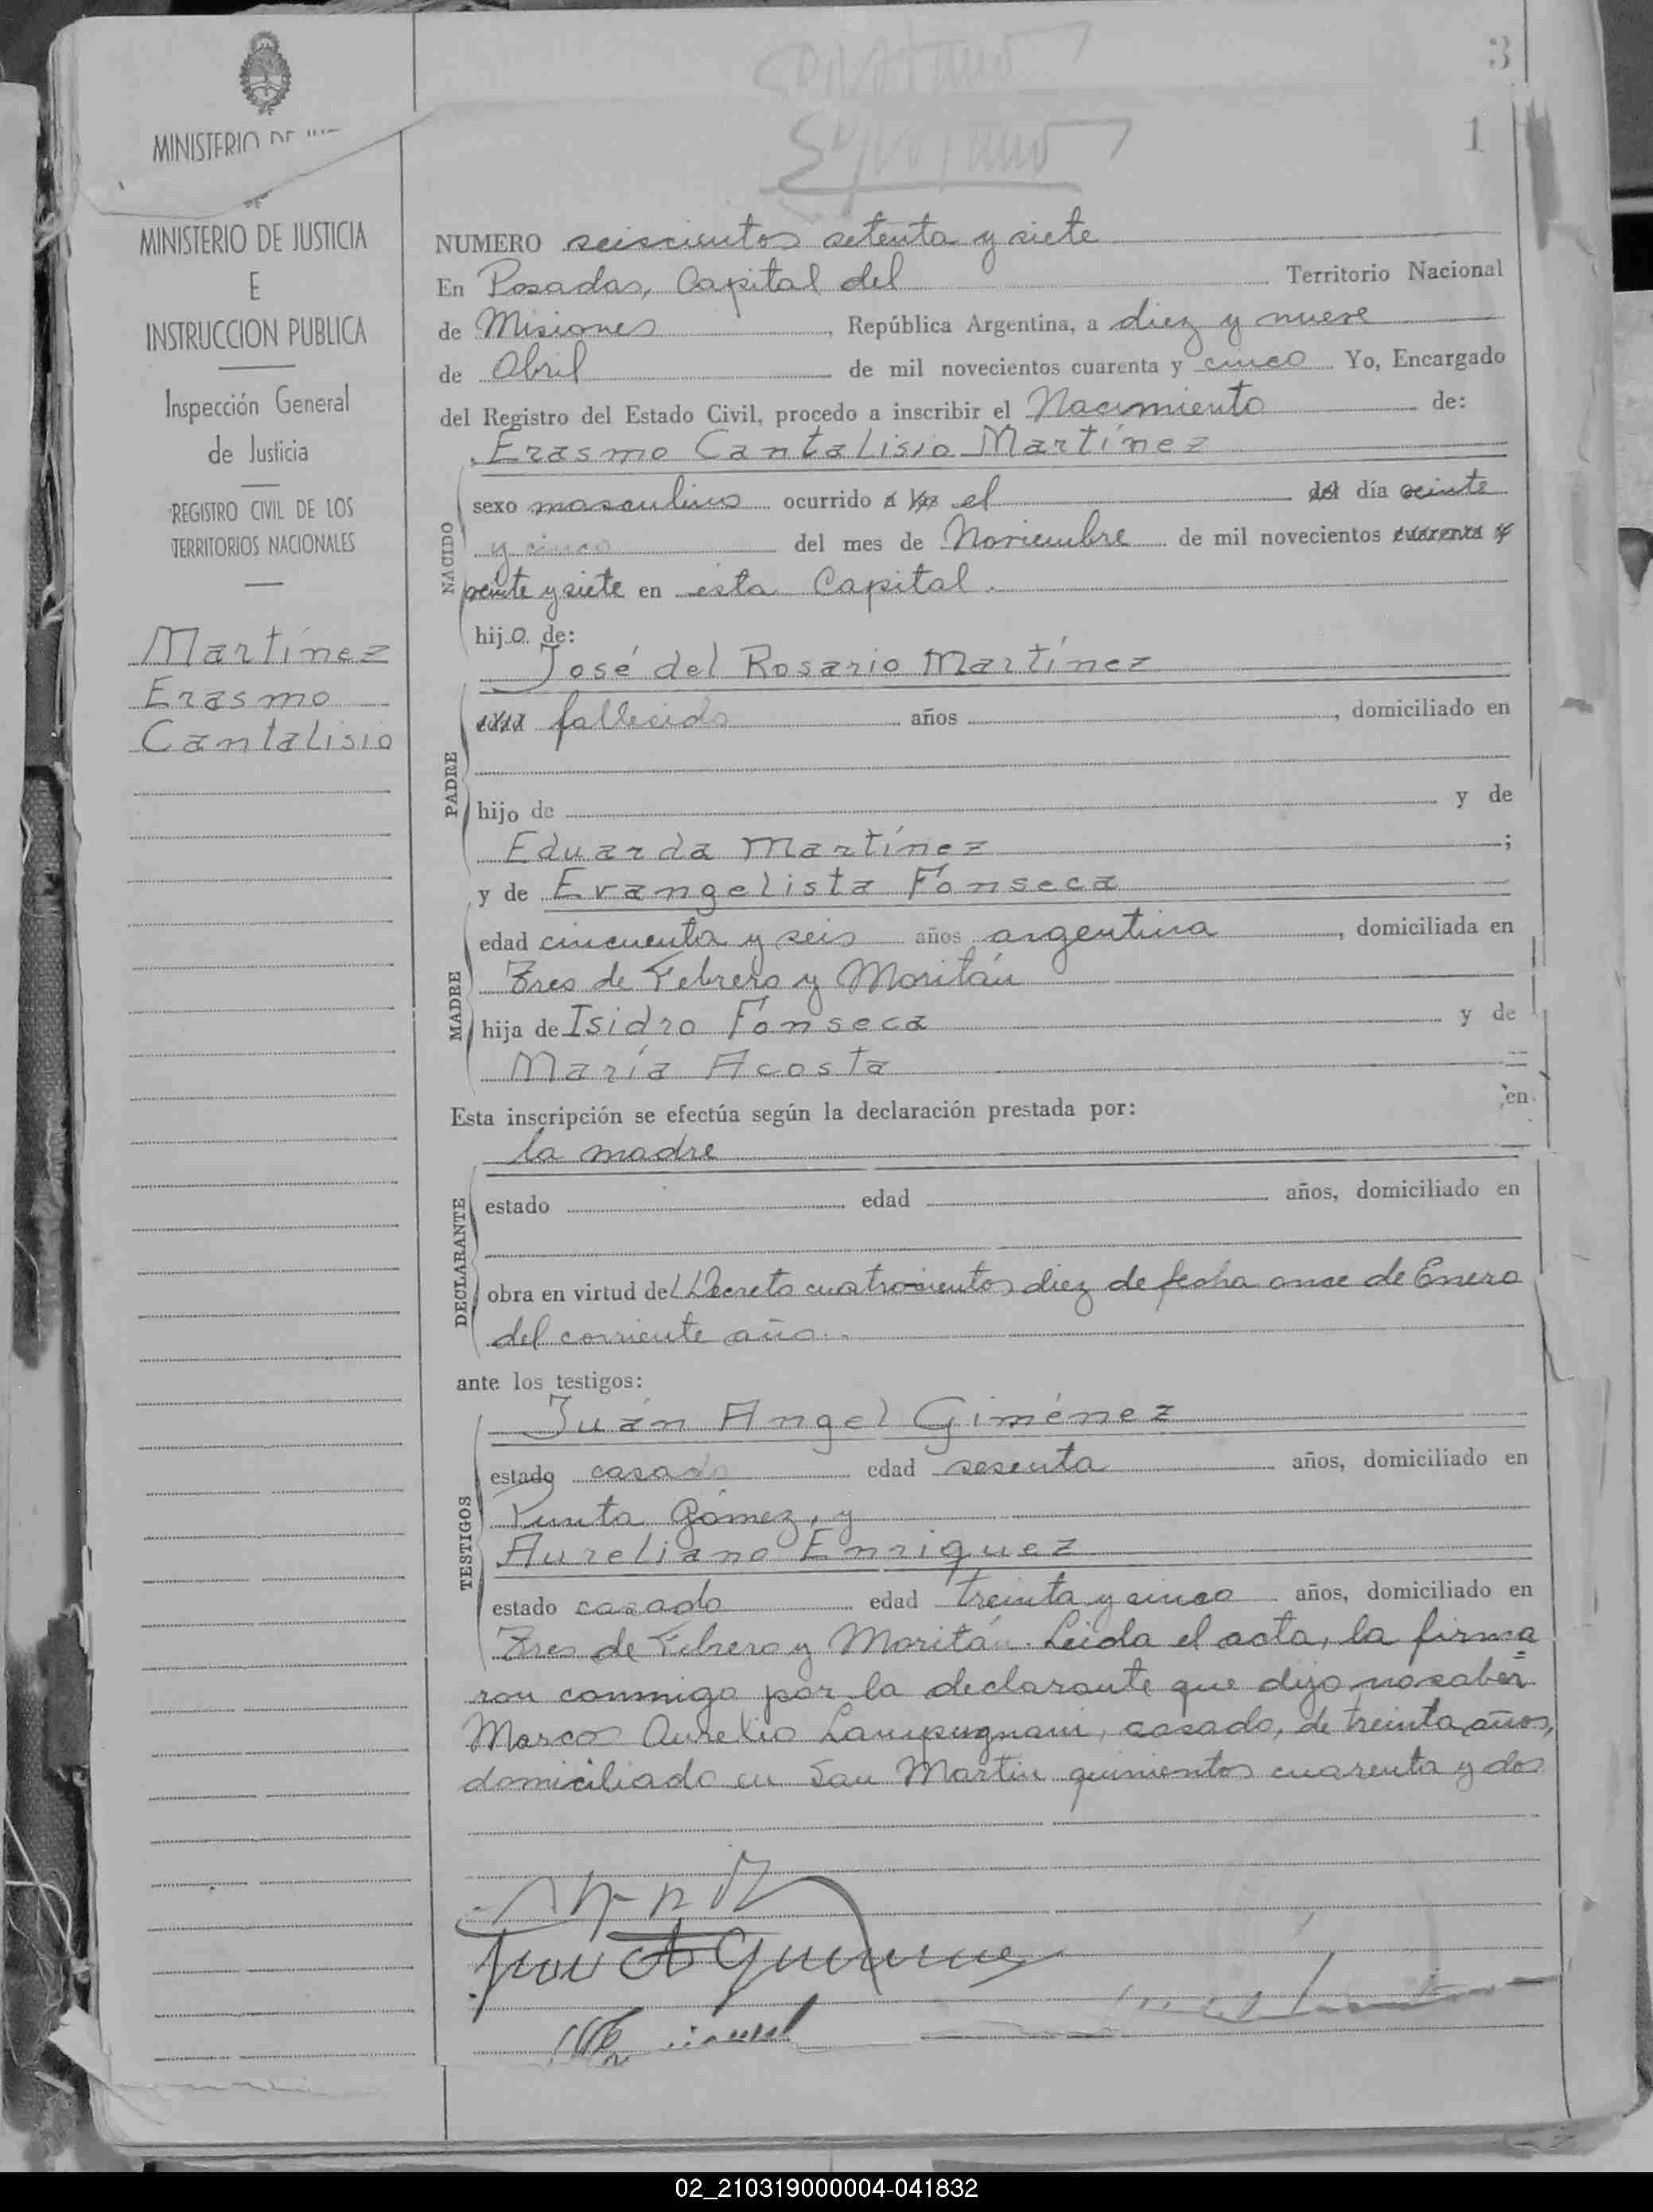 3
1
MINISTERIO DE
MINISTERIO DE JUSTICIA
E
INSTRUCCION PUBLICA
Inspección General
de Justicia
REGISTRO CIVIL DE LOS
TERRITORIOS NACIONALES
Martínez
Erasmo
Cantalisio
NUMERO seiscientos setenta y siete
En Posadas, Capital del Territorio Nacional
de Misiones, República Argentina, a diez y nueve
de Abril de mil novecientos cuarenta y cinco Yo, Encargado
del Registro del Estado Civil, procedo a inscribir el Nacimiento de:
Erasmo Cantalisio Martínez
NACIDO
sexo masculino ocurrido a las el del día veinte
y cinco del mes de Noviembre de mil novecientos cuarenta y
veinte y siete en esta Capital.
hijo de:
José del Rosario Martínez
PADRE
edad fallecido años, domiciliado en
hijo de y de
Eduarda Martínez;
y de Evangelista Fonseca
MADRE
edad cincuenta y seis años argentina, domiciliada en
Tres de Febrero y Moritán
hija de Isidro Fonseca y de
María Acosta
en
Esta inscripción se efectúa según la declaración prestada por:
la madre
DECLARANTE
estado edad años, domiciliado en
obra en virtud del Decreto cuatrocientos diez de fecha once de Enero
del corriente año.
ante los testigos:
Juán Angel Giménez
TESTIGOS
estado casado edad sesenta años, domiciliado en
Punta Gómez, y
Aureliano Enriquez
estado casado edad treinta y cinco años, domiciliado en
Tres de Febrero y Moritán. Leida el acta, la firma=
ron conmigo por la declarante que dijo no saber
Marcos Aurelio Lampugnani, casado, de treinta años,
domiciliado en San Martin quinientos cuarenta y dos
02_210319000004-041832